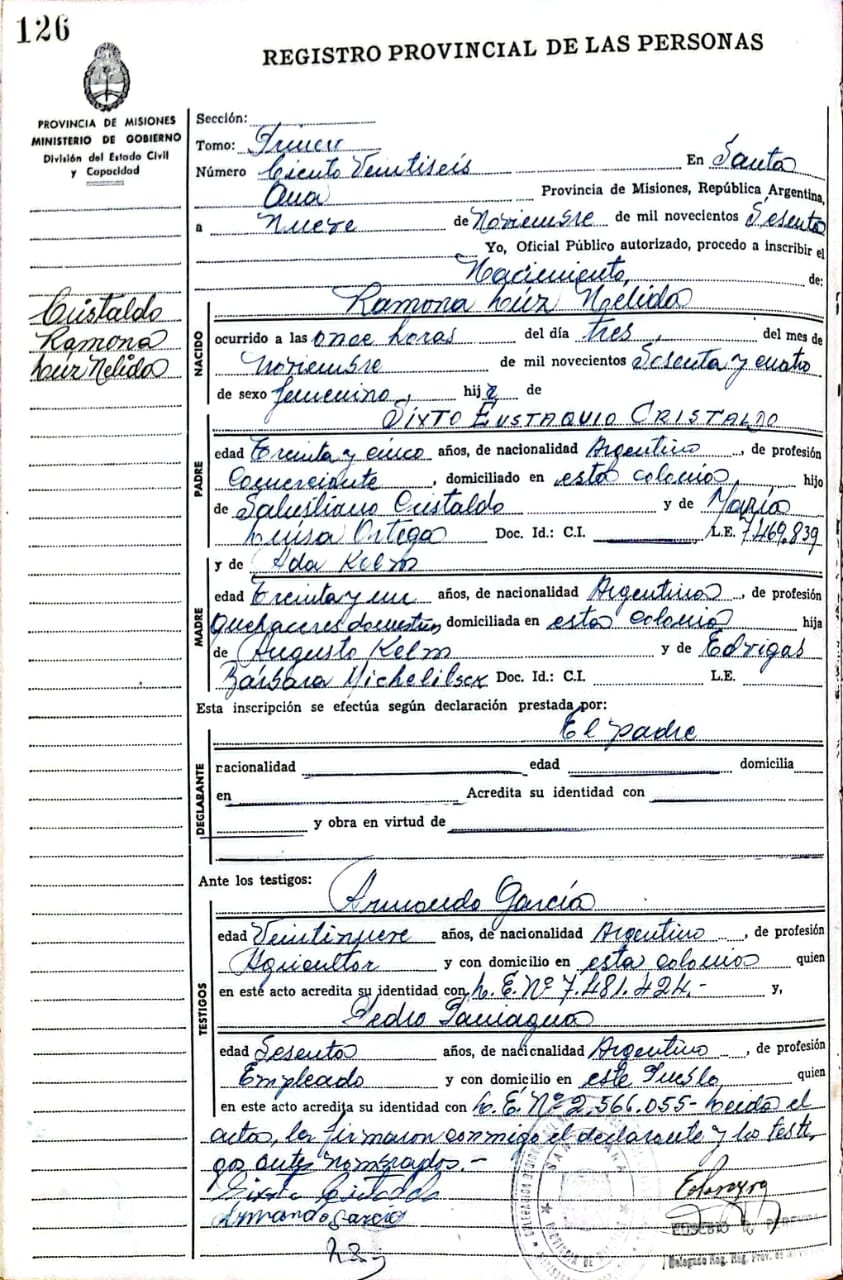 126
REGISTRO PROVINCIAL DE LAS PERSONAS
PROVINCIA DE MISIONES
MINISTERIO DE GOBIERNO
División del Estado Civil
y Capacidad
Cristaldo
Ramona
Lúz Nelida
Sección:
Tomo: Primero
Número Ciento Veintiseis En Santa
Ana Provincia de Misiones, República Argentina,
a Nueve de Noviembre de mil novecientos Sesenta
Yo, Oficial Público autorizado, procedo a inscribir el
Nacimiento, de:
NACIDO
Ramona Lúz Nelida
ocurrido a las once horas del día tres, del mes de
noviembre de mil novecientos Sesenta y cuatro
de sexo femenino, hija de
SIXTO EUSTAQUIO CRISTALDO
PADRE
edad Treinta y cinco años, de nacionalidad Argentino, de profesión
Comerciante, domiciliado en esta colonia, hijo
de Salustiano Cristaldo y de María
Luisa Ortega Doc. Id.: C.I. L.E. 7.469.839
y de Ada Kelm
MADRE
edad Treinta y un años, de nacionalidad Argentina, de profesión
Quehaceres domesticos domiciliada en esta colonia hija
de Augusto Kelm y de Edvigas
Bárbara Doc. Id.: C.I. L.E.
Esta inscripción se efectúa según declaración prestada por:
El padre
DECLARANTE
nacionalidad edad domicilia
en Acredita su identidad con
y obra en virtud de
Ante los testigos:
Armando García
TESTIGOS
edad Veintinueve años, de nacionalidad Argentino, de profesión
Agricultor y con domicilio en esta colonia quien
en este acto acredita su identidad con L.E. Nº 7.481.424.- y,
Pedro Paniagua
edad Sesenta años, de nacionalidad Argentino, de profesión
Empleado y con domicilio en este Pueblo quien
en este acto acredita su identidad con L.E. Nº 2.566.055- Leida el
acta, la firmaron conmigo el declarante y los testi,
gos antes nombrados.-
Sixto Cristaldo
Armando García
SANTA ANA
Delegado Reg. Prov. de